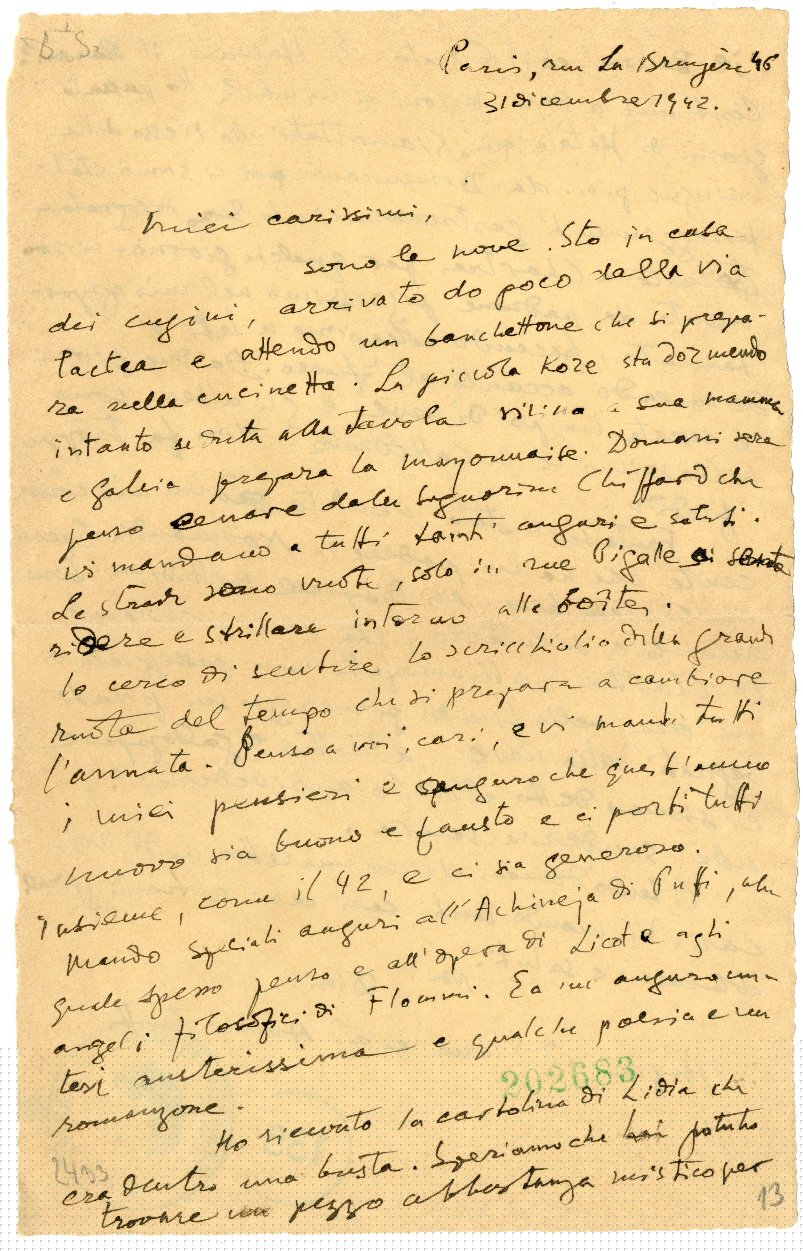 Paris, rue La Bruyère 46
31 dicembre 1942.
Miei carissimi,
sono le nove. Sto in casa
dei cugini, arrivato do poco dalla via
lactea e attendo un banchettone che si prepa-
ra nella cucinetta. La piccola Kore sta dormendo
intanto seduta alla tavola vicino a sua mamma
e prepara la mayonnaise. Domani sera
penso cenare dalla Signorina Chiffard che
vi mandano a tutti tanti auguri e saluti.
Le strade sono vuote, solo in rue Pigalle si sente
ridere e strillare intorno alle boîtes.
Io cerco di sentire lo scricchiolio della grande
ruota del tempo che si prepara a cambiare
l'annata. Penso a voi, cari, e vi mando tutti
i miei pensieri e auguro che quest'anno
nuovo sia buono e fausto e ci porti tutti
insieme, come il 42, e ci sia generoso.
Mando speciali auguri all' di Puffi, alla
quale spesso penso e all'opera di Licot e agli
angeli filosofici di Flommi. E a me auguro un
e qualche poesia e un
romanzone.
Ho ricevuto la cartolina di Lidia che
era dentro una busta. Speriamo che hai potuto
trovare un pezzo abbastanza mistico per
202683
2493
13